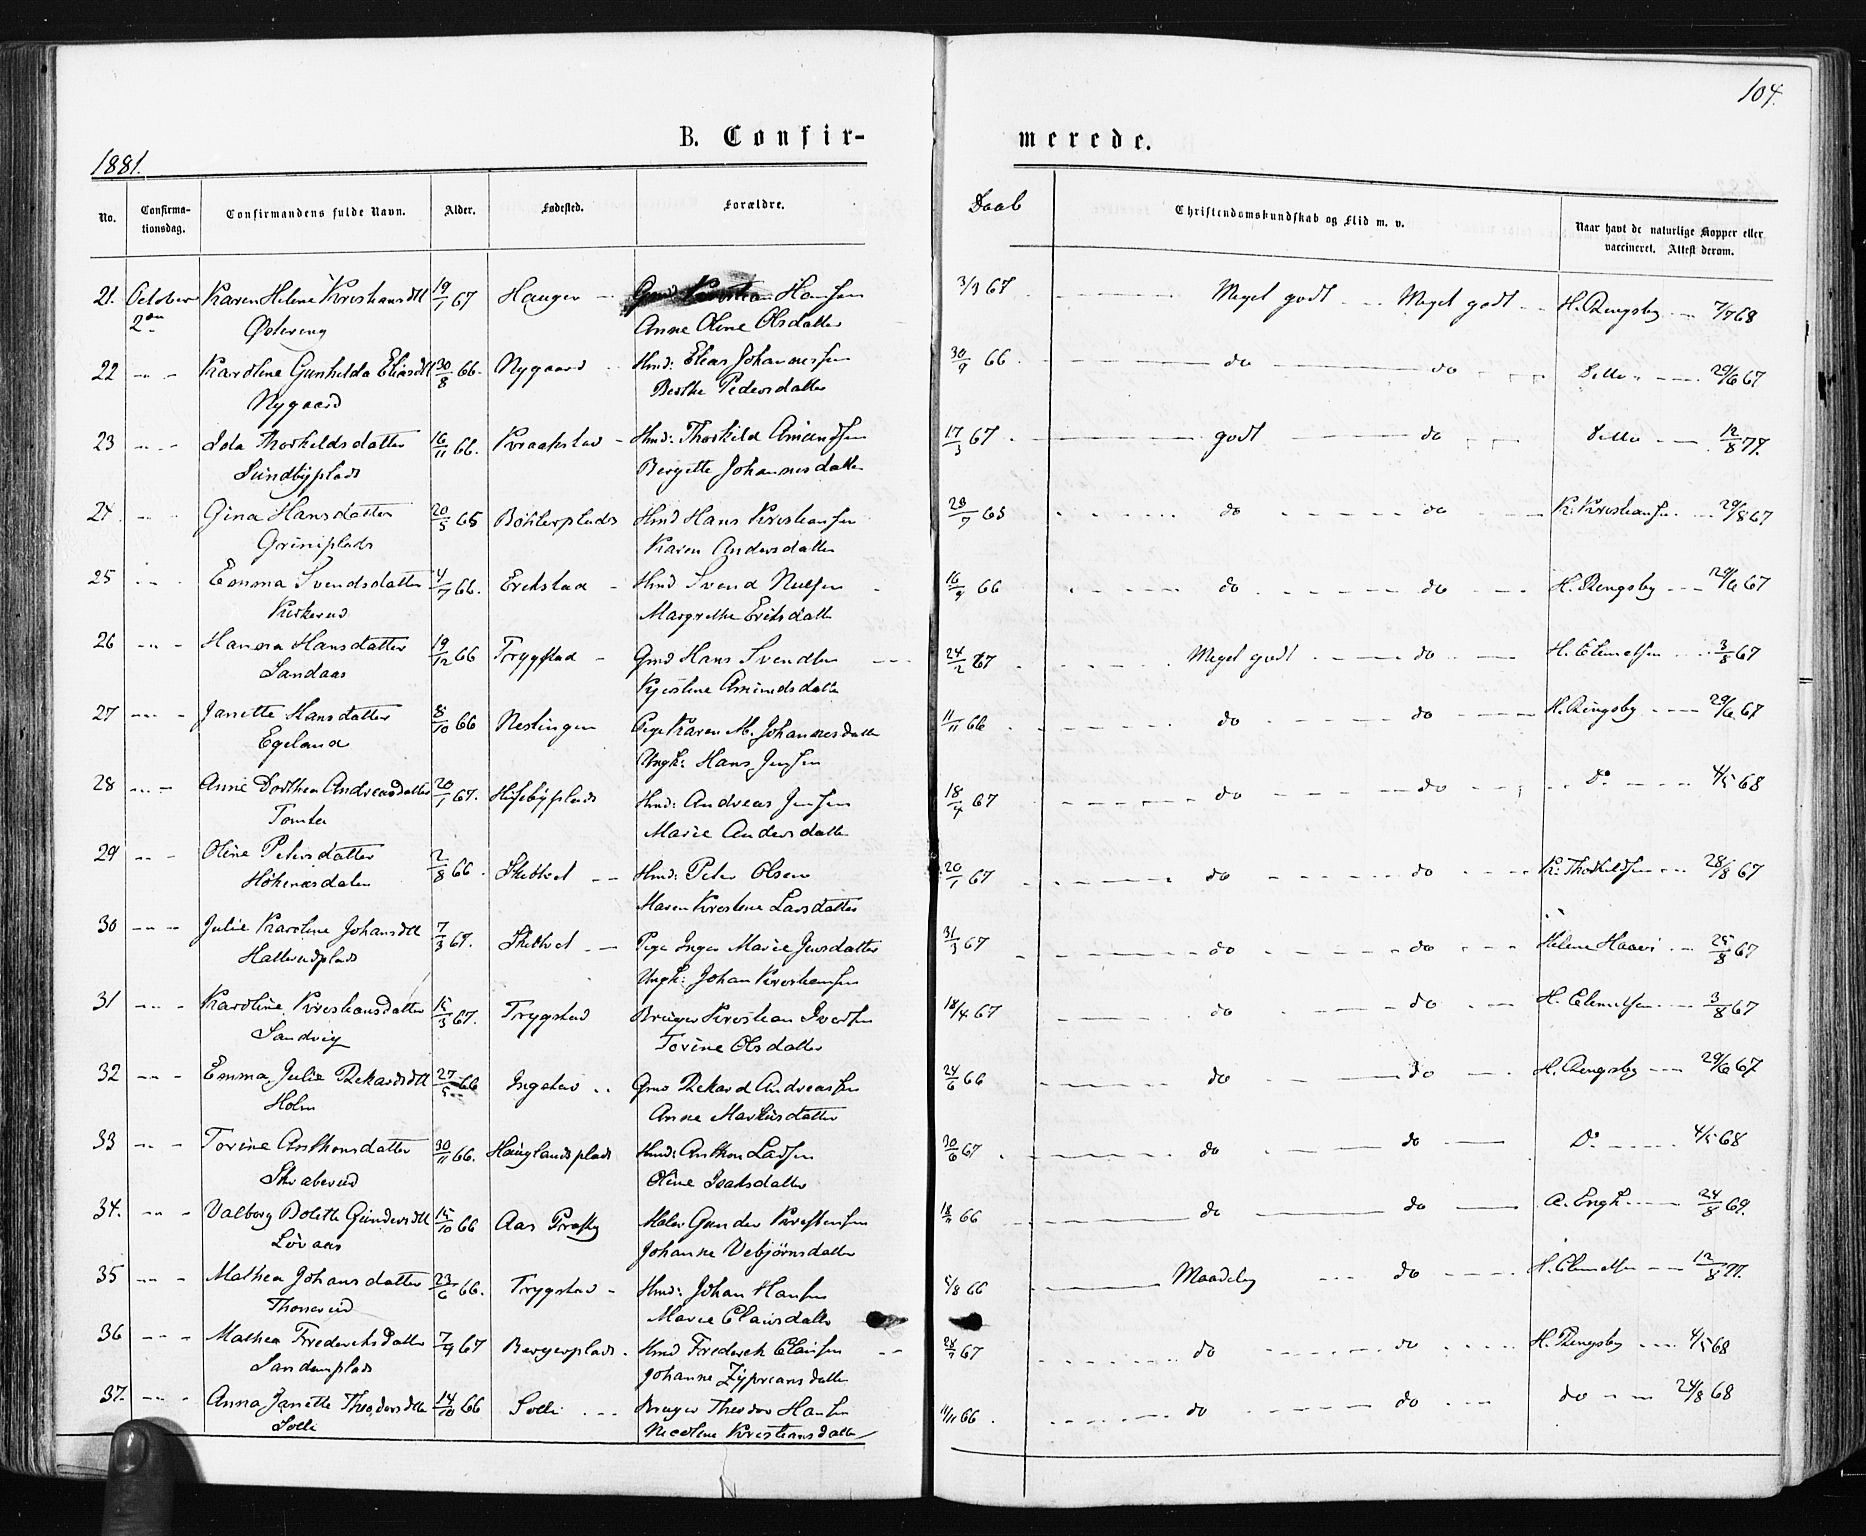 104.
B. Confir-
merede.
1881.
No.
Confirma-
tionsdag.
Confirmandens fulde Navn.
Alder.
Fødested.
Forældre.
Daab
Christendomskundskab og Flid m. v.
Naar havt de naturlige Kopper eller
vaccineret. Attest derom.
21. October Karen Helene Kristiansdtt 19/1 67 Hauger Gmd Kristian Hansen 3/3 67 Meget godt Meget godt H. Rengsby 7/7 68
2den Østereng Anne Oline Olsdatter
22 Karoline Gunhilda Eliasdtt 30/8 66. Nygaard Hmd: Elias Johannessen 30/9 66 do do Ditto 29/6 67
Nygaard Berthe Pedersdatter
23 Ida Thorkeldsdatter 16/11 66. Kraakstad Hmd: Thorkild Amundsen 17/3 67 godt do Ditto 12/8 77.
Sundbyplads Bergette Johannesdatter
24 Gina Hansdatter 20/5 65 Böhlerplads Hmd Hans Kristiansen 23/7 65 do do K. Kristiansen 29/8 67
Griniplads Karen Andersdatter
25 Emma Svendsdatter 4/7 66. Erikstad Hmd Svend Nielsen 16/9 66 do do H. Rengsby 29/6 67
Kirkerud Margrethe Eriksdatter
26 Hanna Hansdatter 19/12 66 Trygstad Gmd Hans Svendsen 24/2 67 Meget godt do H. Clemetsen 3/8 67
Sandaas Kjerstine Amundsdatter
27 Janette Hansdatter 8/10 66 Neslingen Pige Karen M. Johannesdatter 11/11 66 do do H. Rengsby 29/6 67
Egeland Ungk: Hans Jensen
28 Anne Dorthea Andreasdatter 20/1 67. Huseby plads Hmd: Andreas Jensen 18/4 67 do do Do 4/5 68
Tomter Marie Andersdatter
29 Oline Petersdatter 2/8 66. Skibtvet Hmd: Peter Olsen 20/1 67 do do K: Thorkildsen 28/8 67
Maren Kristine Larsdatter
30 Julie Karoline Johansdtt 7/3 67. Skibtvet Pige Inger Marie Jensdatter 31/3 67 do do Helene Haaer 25/8 67
Hallerudplads Ungk: Johan Kristiansen
31 Karoline Kristiansdatter 15/3 67. Trygstad Bruger Kristian Iversen 18/4 67 do do H. Clemetsen 3/8 67
Sandvig Torine Olsdatter
32 Emma Julie Rekardsdtt 27/5 66 Ingstad Gmd Rekard Andreassen 24/6 66 do do H. Rengsby 29/6 67
Holm Anne Markusdatter
33 Torine Anthonsdatter 30/11 66. Hauglandsplads Hmd: Anthon Larsen 30/6 67 do do Do 4/5 68
Skraberud Oline Isaksdatter
34. Valborg Bolette Gundersdtt 15/10 66 Aas Præstg Maler Gunder Kristensen 66 do do A. Engh 24/8 69.
Lövaas Johanne Vebjørnsdatter
35 Mathea Johansdatter 23/6 66. Trygstad Hmd: Johan Hansen 5/8 66 Maadelig do H. Clemetsen 12/8 77.
Thonerud Marie Clausdatter
36 Mathea Frederiksdatter 7/4 67 Bergerplads Hmd Frederik Clausen 67 do do H. Rengsby 4/5 68
Sandemplads Johanne Zypriansdatter
37. Anna Janette Theodorsdtt 14/10 66 Solli Bruger Theodor Hansen 11/11 66 do do do 24/8 68
Solli Nicoline Kristiansdatter